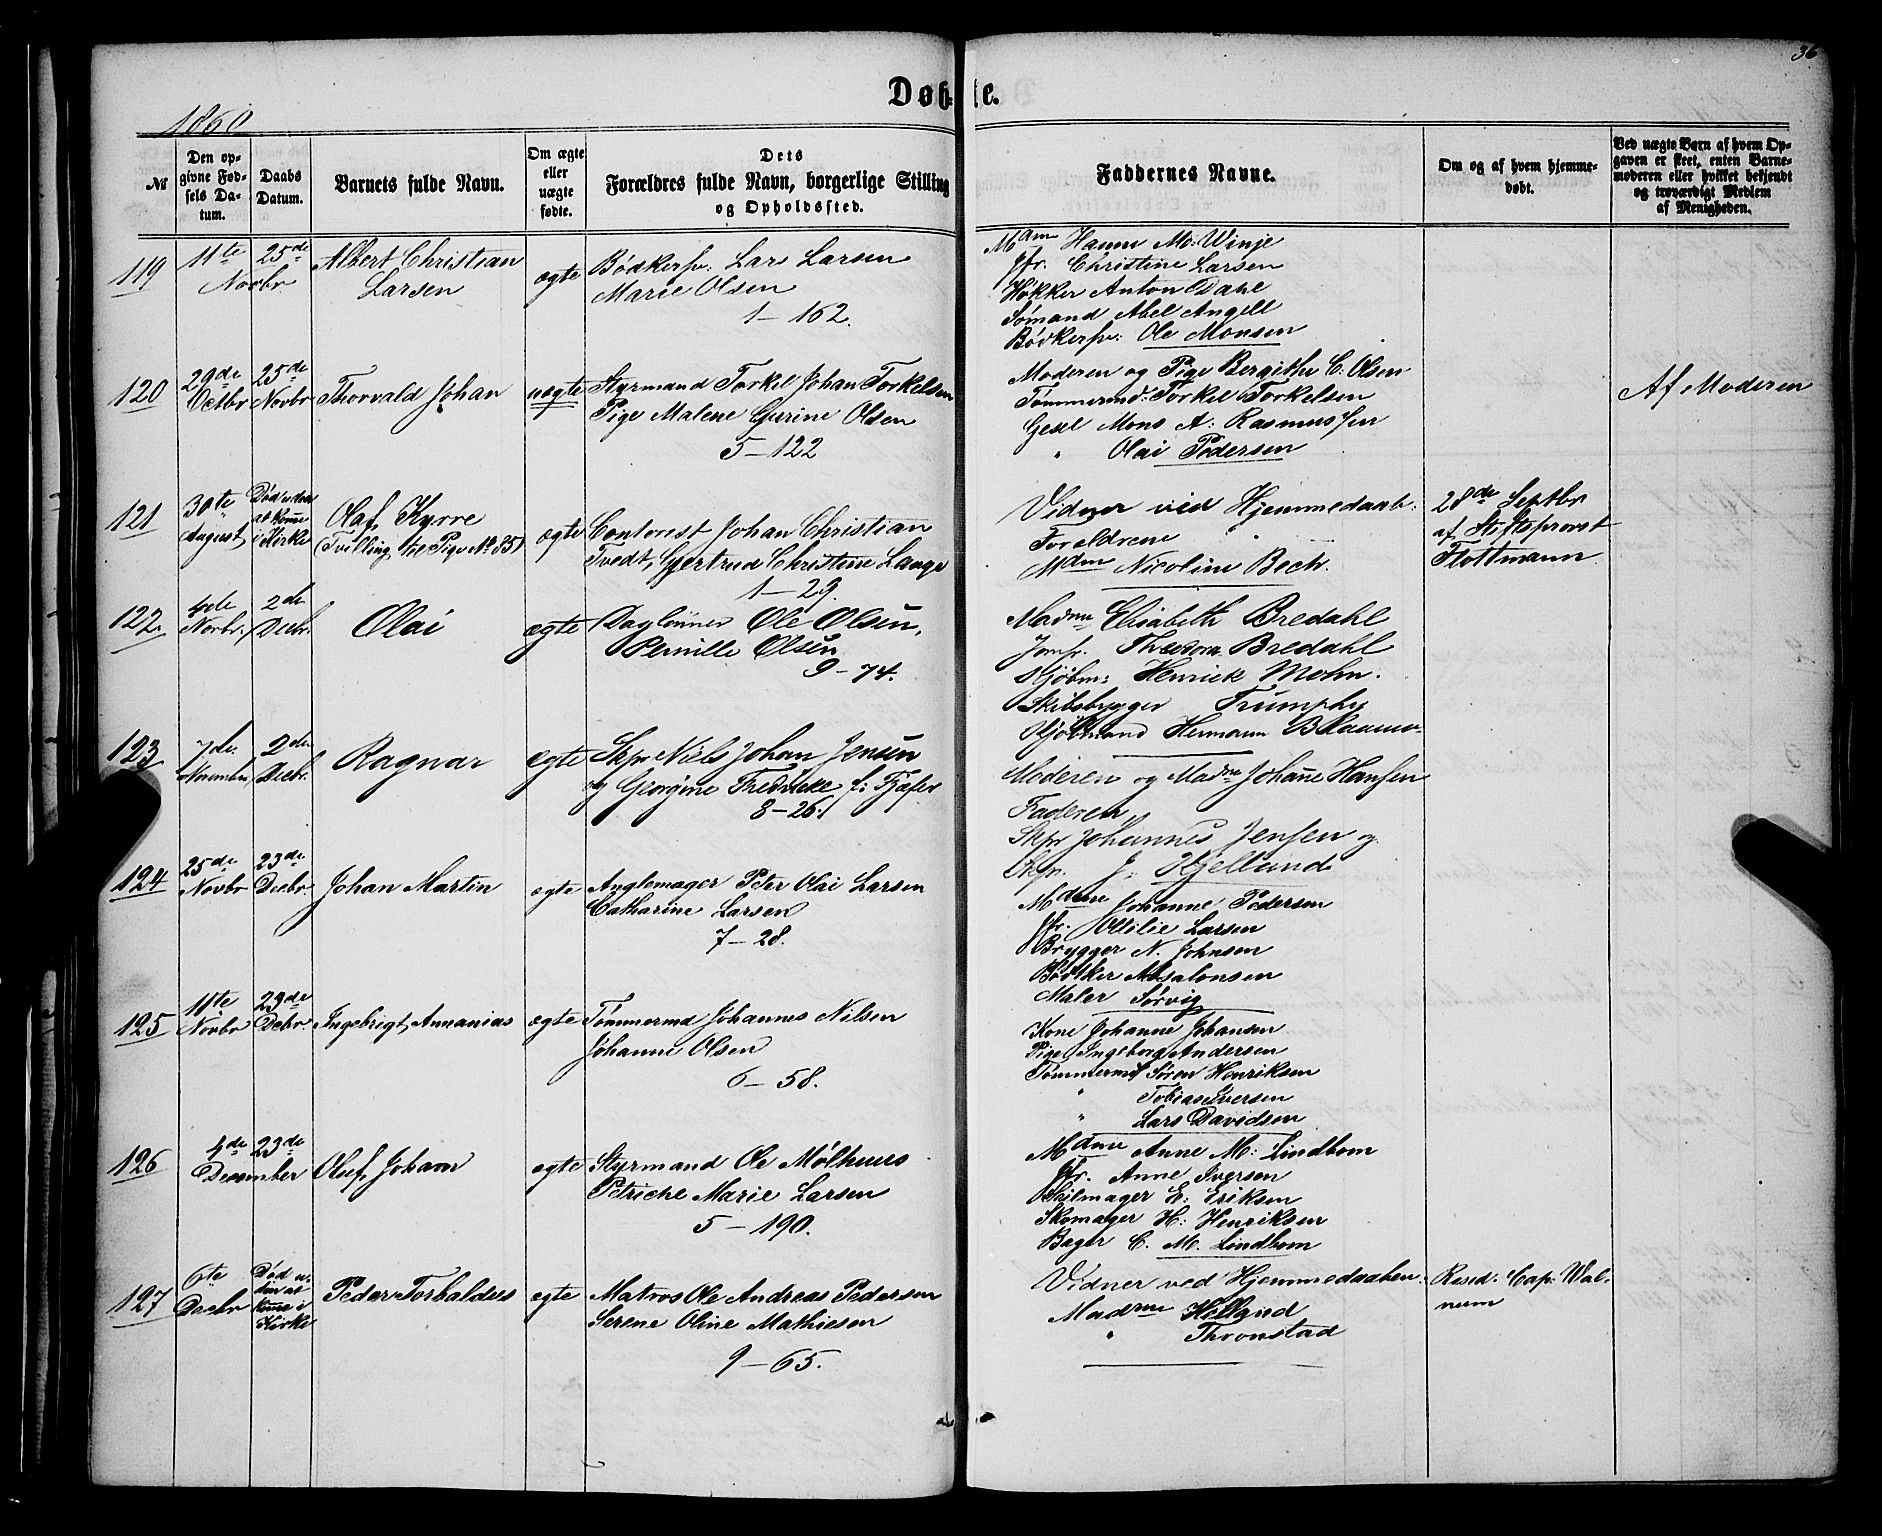 36
Døbte.
1860
№
Den opgivne Fødsels Datum.
Daabs Datum.
Barnets fulde Navn.
Om ægte eller uægte fødte.
Dets Forældres fulde Navn, borgerlige Stilling og Opholdssted.
Faddernes Navne.
Om og af hvem hjemmedøbt.
Ved uægte Børn af hvem Opgaven er skeet, enten Barnemoderen eller hvilket bekjendt og troværdigt Medlem af Menigheden.
119
11te 25de
Novbr
Albert Christian
Larsen
ægte
Bødkersv: Lars Larsen
Marie Olsen
1–162.
Mdme Hanna M: Winje
Jfr. Christine Larsen
Høkker Anton Dahl
Sømand Abel Angell
Bødkersv: Ole Monsen
120
29de Octbr
25de Novbr
Thorvald Johan
uægte
Styrmand Torkel Johan Torkelsen
Pige Malene Gurine Olsen
5–122
Moderen og Pige Bergithe C. Olsen
Tømmermd: Torkel Torkelsen
Gesel Mons A: Rasmussen
" Olai Pedersen
Af Moderen
121
30te August
Død uden
at komme
i Kirke
Olaf Kyrre
(Tvilling, the Pige No 85)
ægte
Contorist Johan Christian
Tvedt, Gjertrud Christine Lange
1–29.
Vidner ved Hjemmedaab:
Forældrene
Mdme Nicoline Bech.
28de Septbr
af Stiftsprovst
Flottmann
122
4de Novbr.
2de Decbr.
Olai
ægte
Daglønner Ole Olsen,
Pernille Olsen
9–74.
Madme Elisabeth Bredahl
Jomfr. Theodora Bredahl
Kjøbm: Henrick Mohn.
Skibsbygger Trumphy
Kjøbmand Hermann
123
7de Novembr
2de Decbr.
Ragnar
ægte
Skpr Niels Johan Jensen
og Georgine Fredrikke f: Fjæser
8–26.
Moderen og Madme Johanne Hansen
Faderen
Skpr Johannes Jensen og
Skpr. J. Kjelland
124
25de Novbr
23de Decbr
Johan Martin
ægte
Anglemager Peter Olai Larsen
Catharine Larsen
7–28.
Mdme Johanne Pedersen
Jfr. Otilie Larsen
Brygger N. Johnsen
Bødker Absalonsen
Maler Sørvig
125
11te Novbr
23de Decbr
Ingebrigt Annanias
ægte
Tømmermd Johannes Nilsen
Johanne Olsen
6–58.
Kone Johanne Johansen
Pige Ingeborg Andersen
Tømmermd Søren Henriksen
" Tobias Iversen
" Lars Davidsen
126
4de 23de
December
Oluf Johan
ægte
Styrmand Ole Mølhuus
Petriche Marie Larsen
5–190.
Mdme Anne M: Lindbom
Jfr. Anne Iversen
Seilmager E: Eriksen
Skomager H: Henriksen
Bager C. M. Lindbom
127
6te Decbr
Død uden at
komme i
Kirke
Peder Torbaldus
ægte
Matros Ole Andreas Pedersen
Serene Oline Mathiesen
9–65.
Vidner ved Hjemmedaaben:
Madme Helland
" Thronstad
Resid: Cap: Walnum